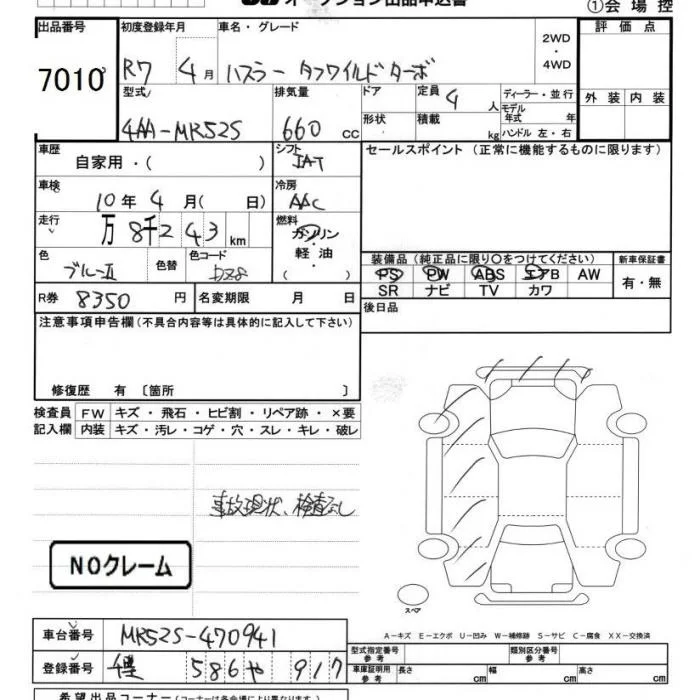 オークション出品申込書
①会場控
出品番号 初度登録年月 車名・グレード 2WD・4WD 評価点
7010 R7 4月 ハスラー タフワイルドターボ
型式 排気量 ドア 定員 4人 ディーラー・並行 外装 内装
形状 積載 kg モデル年式 年
4AA-MR52S 660cc ハンドル 左・右
車歴 自家用・( ) シフト IAT セールスポイント(正常に機能するものに限ります)
車検 10年4月( 日) 冷房 AAC
走行 万8千243km 燃料 ガソリン・軽油・( )
色 ブルーII 色替 色コード
装備品(純正品に限り○をつけてください) 新車保証書
PS PW ABS エアB AW 有・無
SR ナビ TV カワ
R券 8350円 名変期限 月 日 後日品
注意事項申告欄(不具合内容等は具体的に記入して下さい)
修復歴 有〔箇所 〕
検査員記入欄 FW キズ・飛石・ヒビ割・リペア跡・×要
内装 キズ・汚レ・コゲ・穴・スレ・キレ・破レ
事故現状、検査なし
NOクレーム
スペア
A-キズ E-エクボ U-凹み W-補修跡 S-サビ C-腐食 XX-交換済
車台番号 MR52S-470941
型式指定番号 参考 類別区分番号 参考
登録番号 586 や 917
車庫証明記入欄 参考 長さ cm 幅 cm 高さ cm
希望出品コーナー(コーナーは各会場により異なります。)